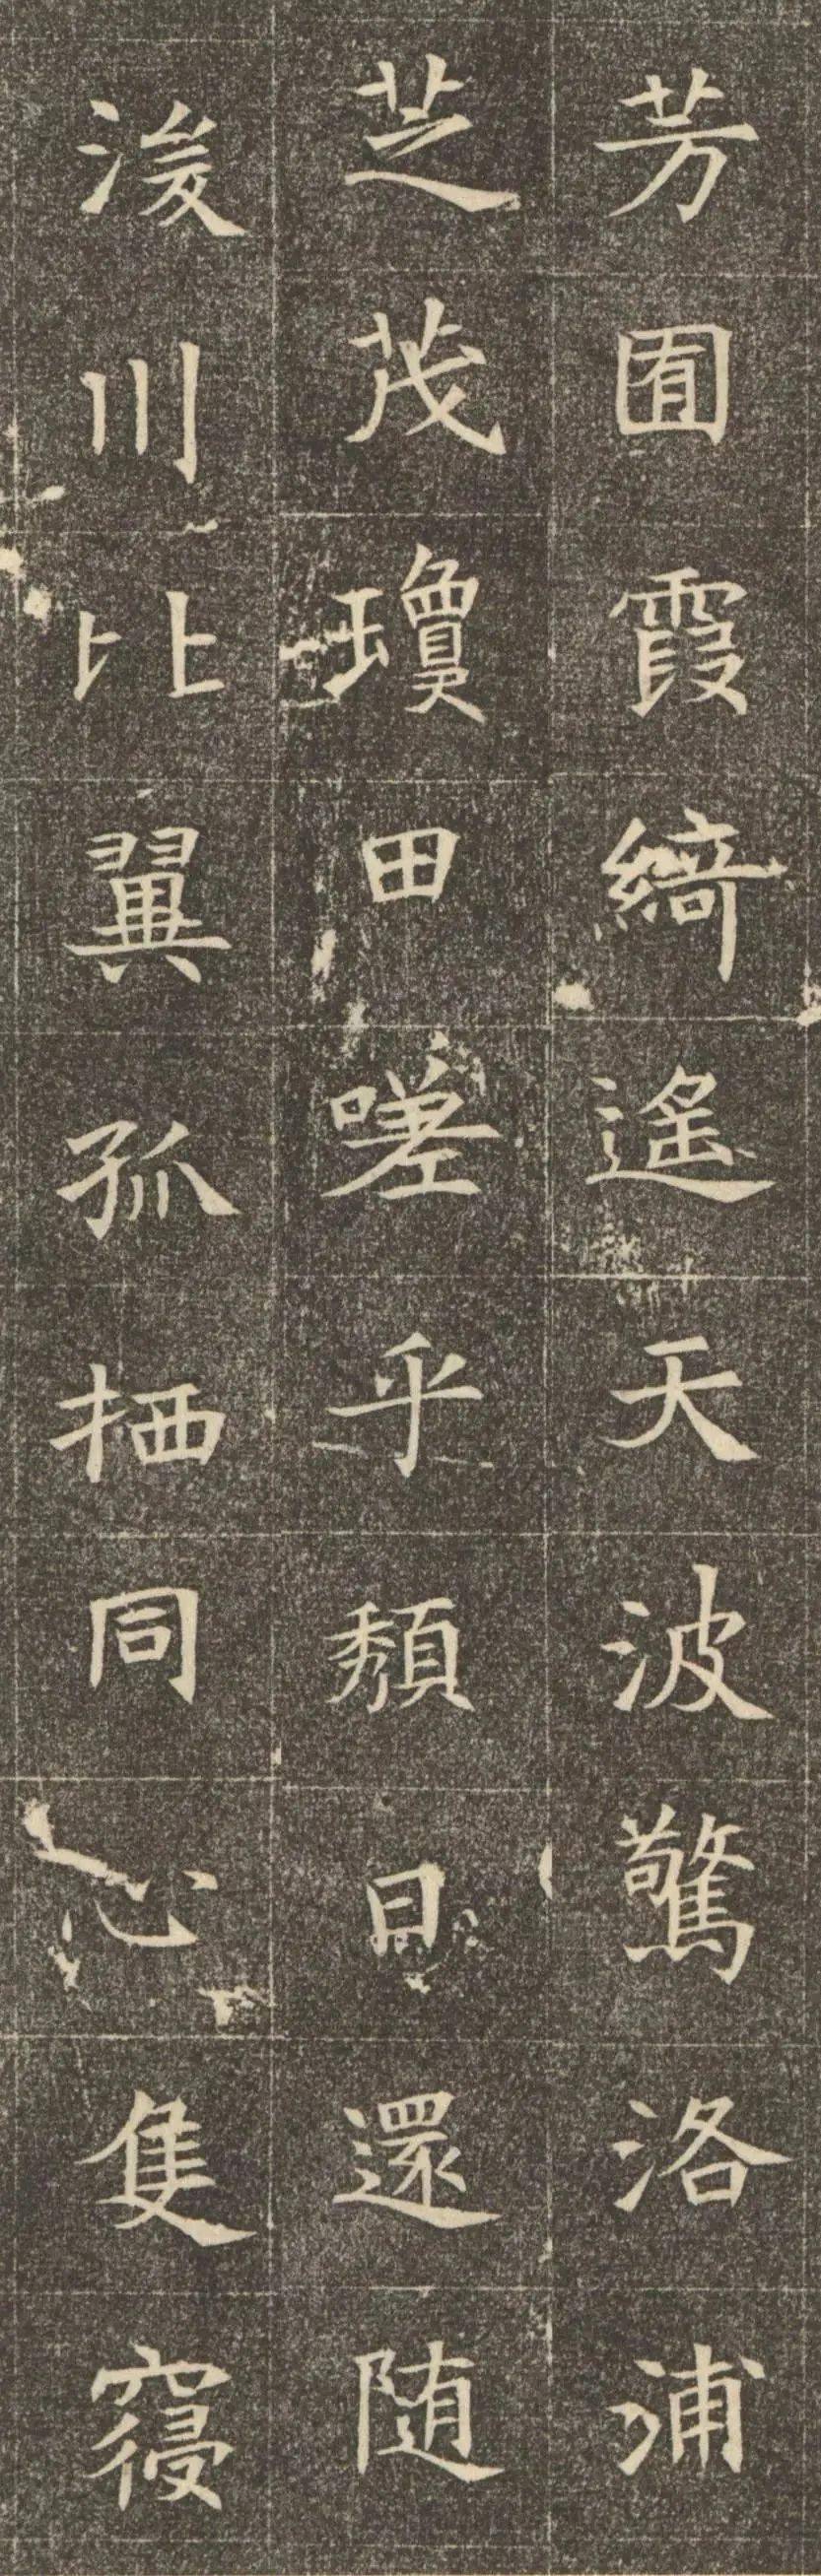 芳囿霞綺遥天波驚洛浦
芝茂瓊田嗟乎頹日還随
浚川比翼孤栖同心隻寑